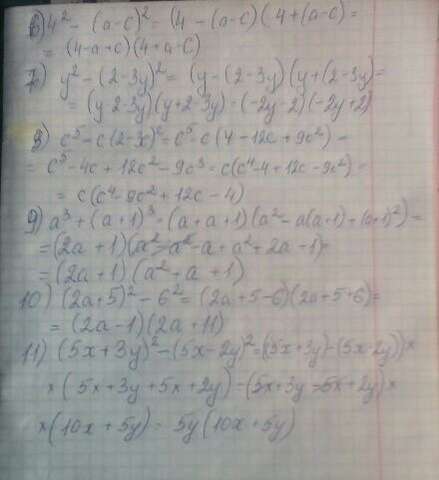 6) 4² - (a-c)² = (4 - (a-c)(4+(a-c) =
= (4-a+c)(4+a-c)
7) y² - (2-3y)² = (y - (2-3y)(y+(2-3y) =
= (y-2-3y)(y+2-3y) = (-2y-2)(-2y+2)
8) c⁵ - c(2-3c)² = c⁵ - c(4-12c+9c²) =
= c⁵ - 4c + 12c² - 9c³ = c(c⁴-4+12c-9c²) =
= c(c⁴-9c²+12c-4)
9) a³ + (a+1)³ = (a+a+1)(a² - a(a+1) + (a+1)²) =
= (2a+1)(a² - a² - a + a² + 2a - 1) =
= (2a+1)(a² + a + 1)
10) (2a+5)² - 6² = (2a+5-6)(2a+5+6) =
= (2a-1)(2a+11)
11) (5x+3y)² - (5x-2y)² = ((5x+3y) - (5x-2y)) ×
× (5x+3y+5x+2y) = (5x+3y-5x+2y) ×
× (10x+5y) = 5y(10x+5y)